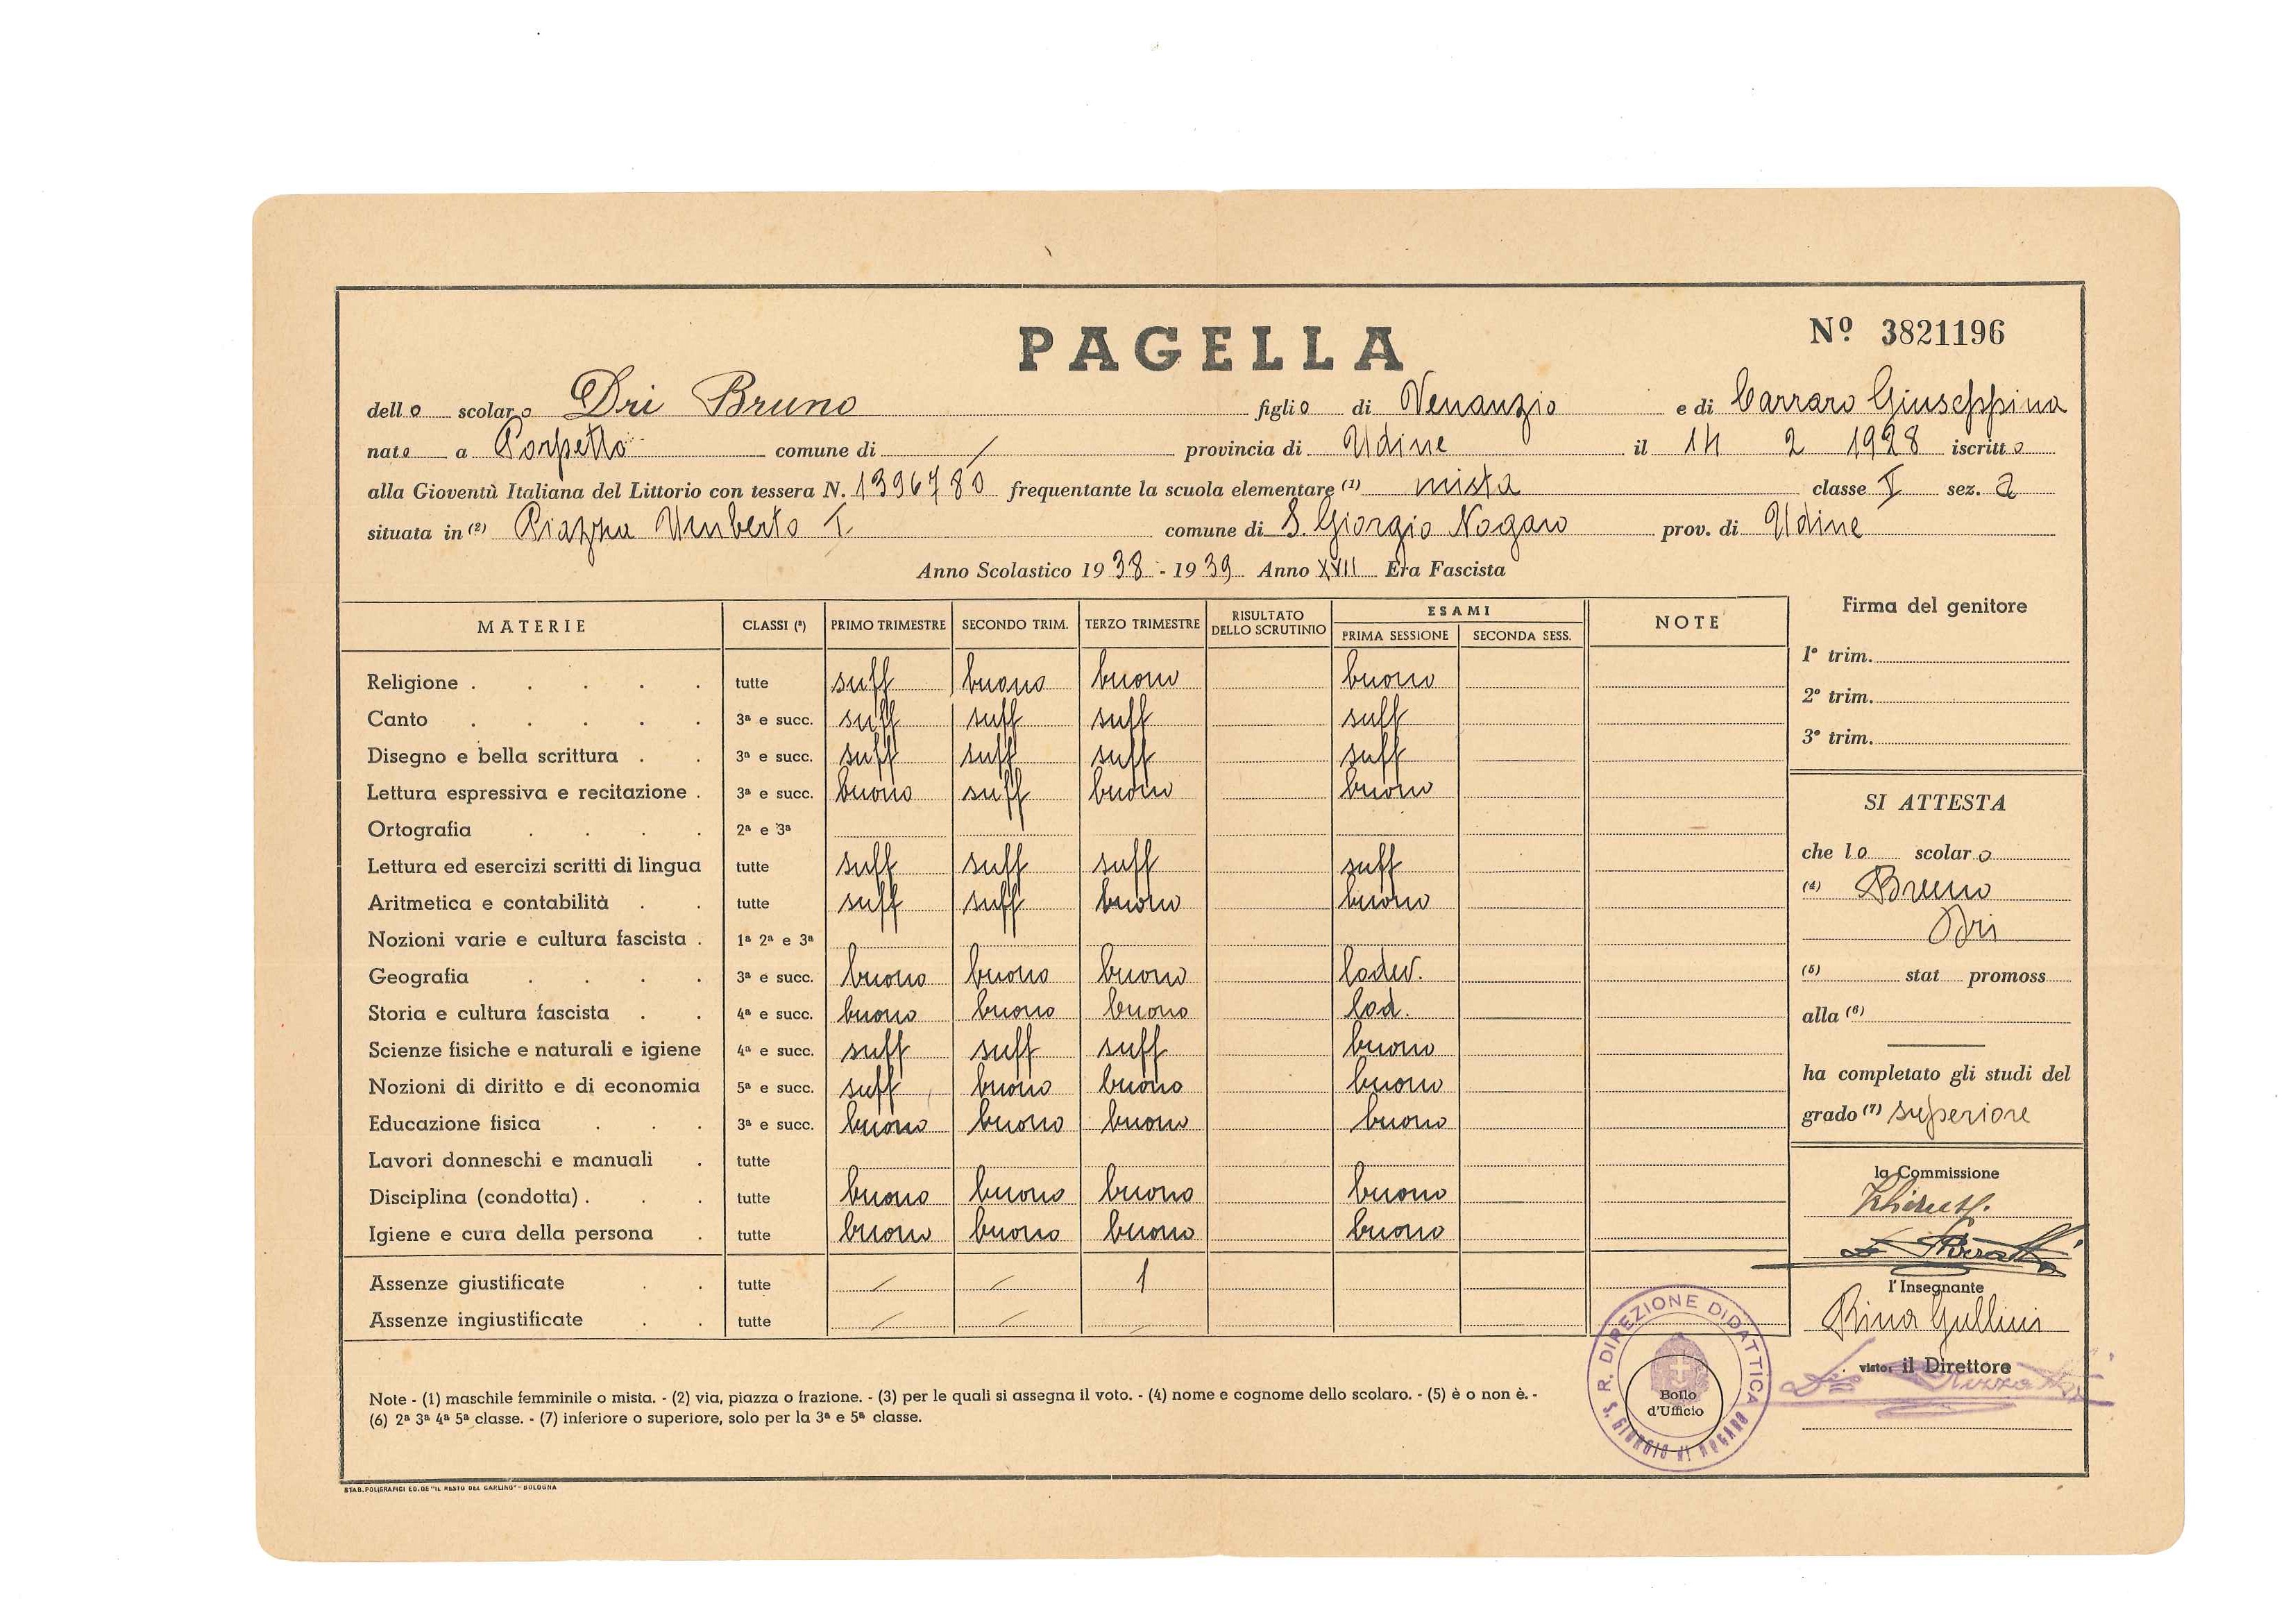 PAGELLA
Nº 3821196
dello scolaro Dri Bruno figlio di Venanzio e di Carraro Giuseppina
nato a Porpetto comune di / provincia di Udine il 14 2 1928 iscritto
alla Gioventù Italiana del Littorio con tessera N. 1396780 frequentante la scuola elementare (1) mista classe V sez. a
situata in (2) Piazza Umberto I comune di S. Giorgio Nogaro prov. di Udine
Anno Scolastico 1938 - 1939 Anno XVII Era Fascista
MATERIE CLASSI (³) PRIMO TRIMESTRE SECONDO TRIM. TERZO TRIMESTRE RISULTATO DELLO SCRUTINIO ESAMI PRIMA SESSIONE SECONDA SESS. NOTE
Religione tutte suff buono buono buono
Canto 3ª e succ. suff suff suff suff
Disegno e bella scrittura 3ª e succ. suff suff suff suff
Lettura espressiva e recitazione 3ª e succ. buono suff buono buono
Ortografia 2ª e 3ª
Lettura ed esercizi scritti di lingua tutte suff suff suff suff
Aritmetica e contabilità tutte suff suff buono buono
Nozioni varie e cultura fascista 1ª 2ª e 3ª
Geografia 3ª e succ. buono buono buono lodev.
Storia e cultura fascista 4ª e succ. buono buono buono lod.
Scienze fisiche e naturali e igiene 4ª e succ. suff suff suff buono
Nozioni di diritto e di economia 5ª e succ. suff buono buono buono
Educazione fisica 3ª e succ. buono buono buono buono
Lavori donneschi e manuali tutte
Disciplina (condotta) tutte buono buono buono buono
Igiene e cura della persona tutte buono buono buono buono
Assenze giustificate tutte / / 1
Assenze ingiustificate tutte / / /
Firma del genitore
1º trim.
2º trim.
3º trim.
SI ATTESTA
che lo scolaro
(4) Bruno
Dri
(5) stat promoss
alla (6)
ha completato gli studi del
grado (7) superiore
la Commissione
l'Insegnante
Rina Gullini
visto: il Direttore
R. DIREZIONE DIDATTICA
S. GIORGIO DI NOGARO
Bollo
d'Ufficio
Note - (1) maschile femminile o mista. - (2) via, piazza o frazione. - (3) per le quali si assegna il voto. - (4) nome e cognome dello scolaro. - (5) è o non è. -
(6) 2ª 3ª 4ª 5ª classe. - (7) inferiore o superiore, solo per la 3ª e 5ª classe.
STAB. POLIGRAFICI ED. DE "IL RESTO DEL CARLINO" - BOLOGNA